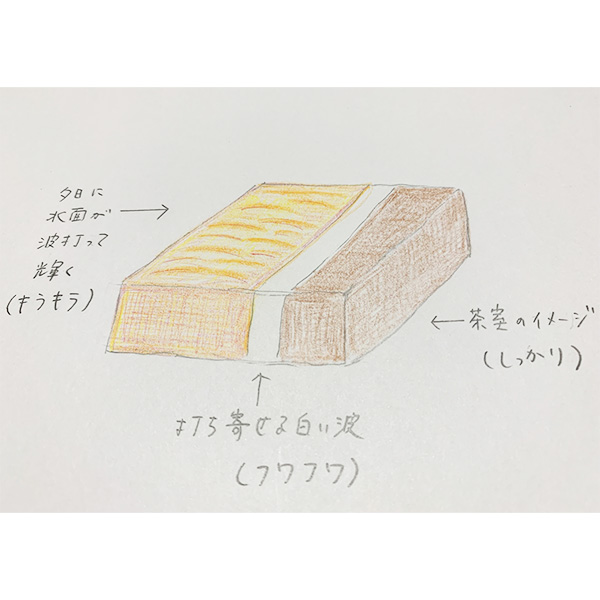 夕日に
水面が
波打って
輝く
(キラキラ)
←茶室のイメージ
(しっかり)
打ち寄せる白い波
(フワフワ)